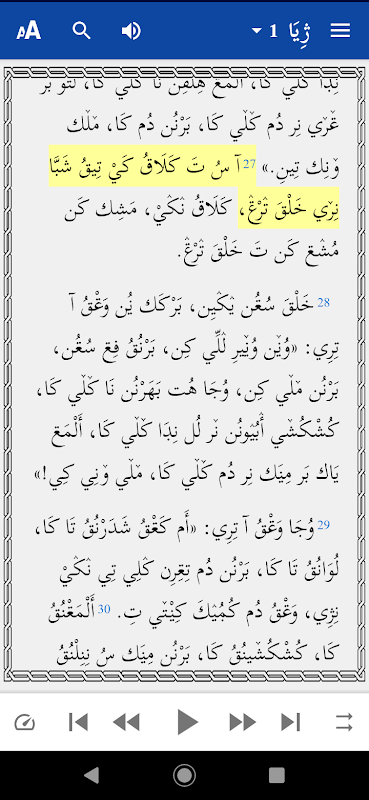 ژِيَا 1
نِدَا كَلٜي كَا، اَلْمَغ هِلٜڢِن نَا كَلٜي كَا، لَتٛو بَر
غَرٜي نِر دُم كَلٜي كَا، بَرْنُن دُم كَا، مَلَك
وٛنِك تِينِ.» 27 آ سُ تَ كَلَاڧُ كَيْ تِيڧُ شَبَّا
نِرٜي خَلْڧَ تَرْڠَ، كَلَاڧُ نَكَيْ، مَشِك كَن
مُشَع كَن تَ خَلْڧَ تَرْڠَ.
28 خَلْڧَ سُغُن يَكَيِن، بَرْكَك يُن وَغْڧُ آ
تِرِي: «وُيَن وُيَيرِ لَلِّي كِن، بَرْنُڧُ ڢِع سُغُن،
بَرْنُن مَلٜي كِن، وُجَا هُت بَهَرْنُن نَا كَلٜي كَا،
كُشْكُشٜي أَبُيَونُن نَر لُل نِدَا كَلٜي كَا، أَلْمَغ
يَاك بَر مِيَك نِر دُم كَلٜي كَا، مَلٜي وٛنِي كِي!»
29 وُجَا وَغْڧُ آ تِرِي: «أَم كَغْڧُ شَدَرْنُڧُ تَا كَا،
لُوَانُڧُ تَا كَا، بَرْنُن دُم تِغِرِن كَلِي تِي نَكَيْ
نِژِي، وَغْڧُ دُم كُمُيَك كِيْتٜي تِ. 30 أَلْمَغْنُڧُ
كَا، كُشْكُشٜينُڧُ كَا، بَرْنُن مِيَك سُ نِنِلْنُڧُ